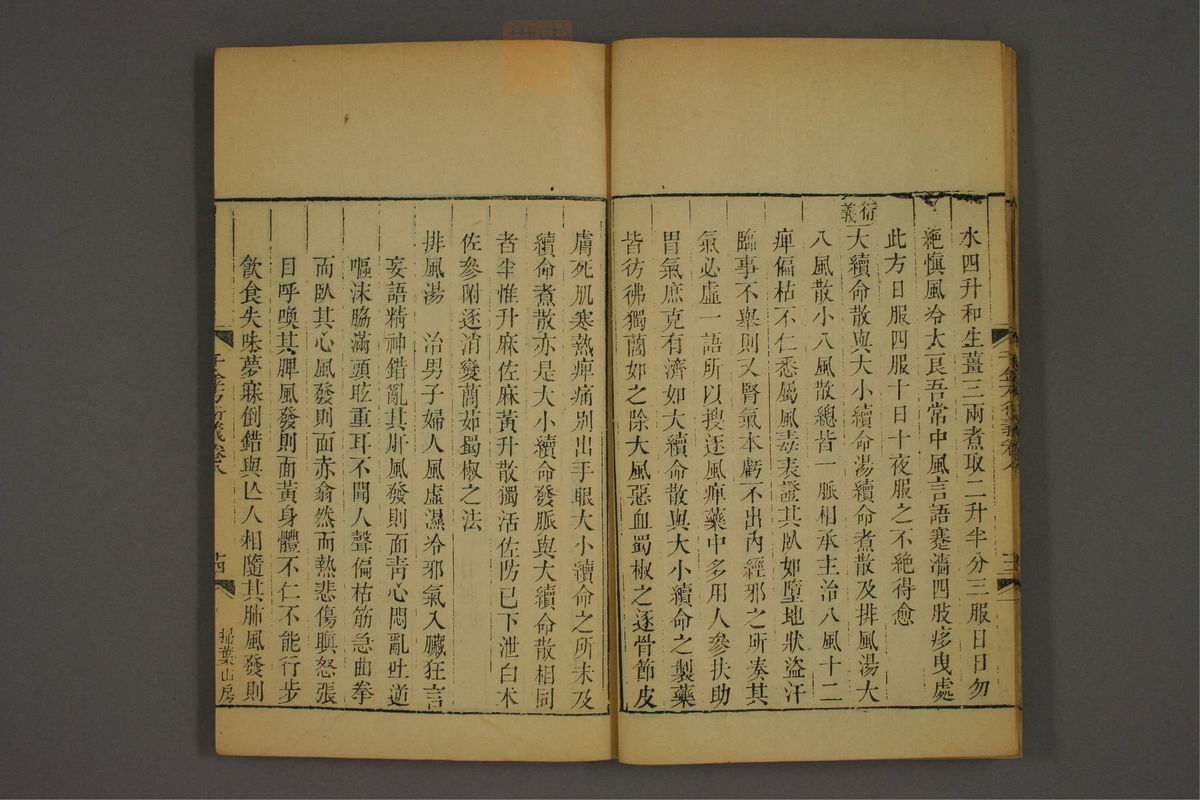 水四升和生薑三兩煮取二升半分三服日日勿
絕慎風冷大良吾常中風言語蹇澀四肢痑曳處
此方日服四服十日十夜服之不絕得愈
衍義
大續命散與大小續命湯續命煮散及排風湯大
八風散小八風散總皆一脈相承主治八風十二
痺偏枯不仁悉屬風毒表證其臥如墮地狀盜汗
臨事不舉則又腎氣本虧不出內經邪之所湊其
氣必虛一語所以搜逐風痺藥中多用人參扶助
胃氣庶克有濟如大續命散與大小續命之製藥
皆彷彿獨藺茹之除大風惡血蜀椒之逐骨節皮
膚死肌寒熱痺痛別出手眼大小續命之所未及
續命煮散亦是大小續命發脈與大續命散相同
者半惟升麻佐麻黃升散獨活佐防已下泄白朮
佐參附逐消變藺茹蜀椒之法
排風湯　治男子婦人風虛濕冷邪氣入臟狂言
妄語精神錯亂其肝風發則面青心悶亂吐逆
嘔沫脇滿頭眩重耳不聞人聲偏枯筋急曲拳
而臥其心風發則面赤翕然而熱悲傷瞋怒張
目呼喚其脾風發則面黃身體不仁不能行步
飲食失味夢寐倒錯與亾人相隨其肺風發則
千金方衍義卷八
十四
掃葉山房